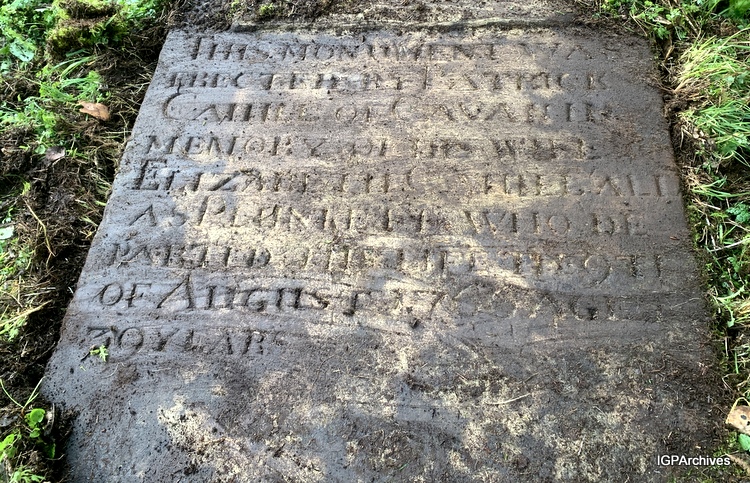 THIS MONUMENT WAS
ERECTED BY PATRICK
CAHILL OF CAVAN IN
MEMORY OF HIS WIFE
ELIZABETH CAHILL ALI
AS PLUNKETT WHO DE
PARTED THIS LIFE THE 9TH
OF AUGUST AGED
70 YEARS
IGPArchives